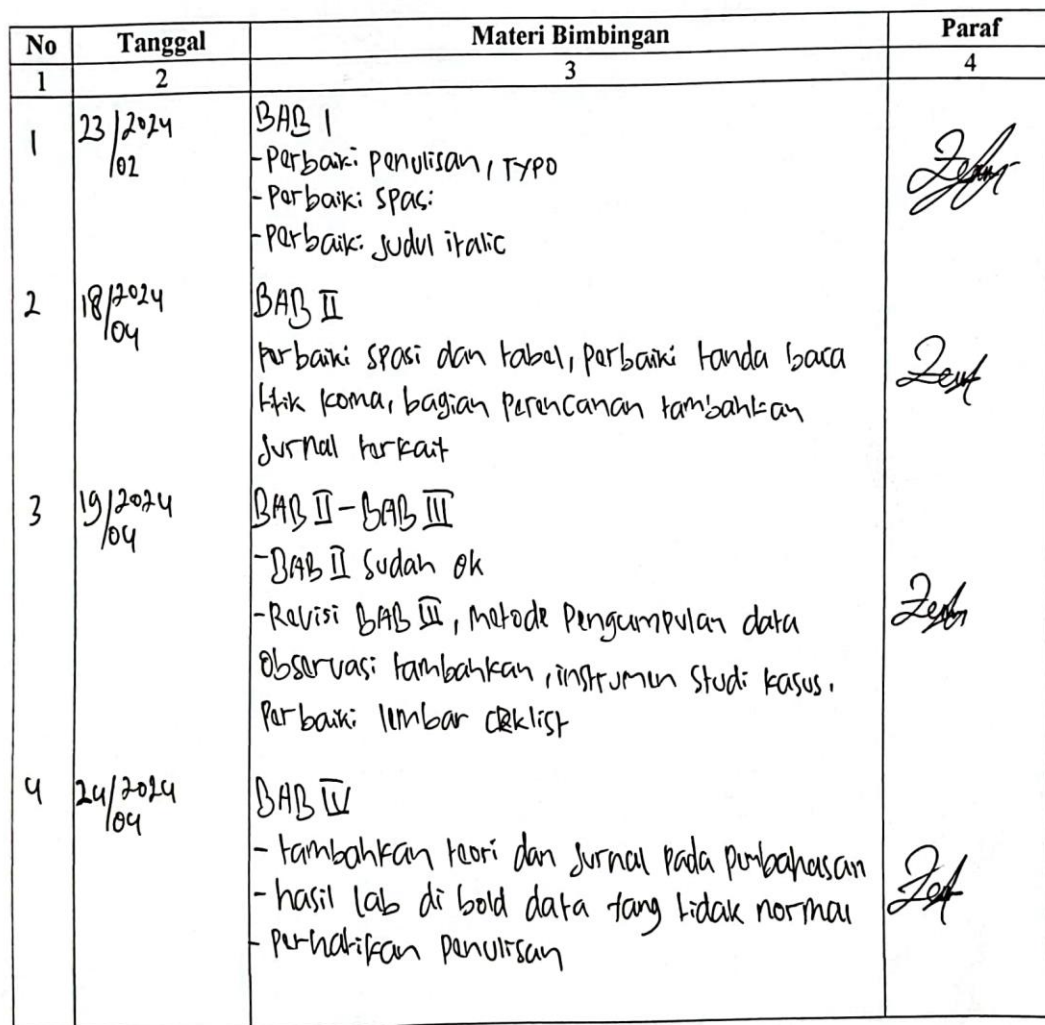 No Tanggal Materi Bimbingan Paraf
1 2 3 4
1 23/2024 BAB I
/02 - Perbaiki penulisan, TYPO
- Perbaiki spasi
- Perbaiki judul italic
2 18/2024 BAB II
/04 perbaiki spasi dan tabel, perbaiki tanda baca
titik koma, bagian perencanan tambahkan
jurnal terkait
3 19/2024 BAB II - BAB III
/04 - BAB II sudah ok
- Revisi BAB III, metode pengumpulan data
observasi tambahkan, instrumen studi kasus.
Perbaiki lembar ceklist
4 24/2024 BAB IV
/04 - tambahkan teori dan jurnal pada pembahasan
- hasil lab di bold data yang tidak normal
- perhatikan penulisan